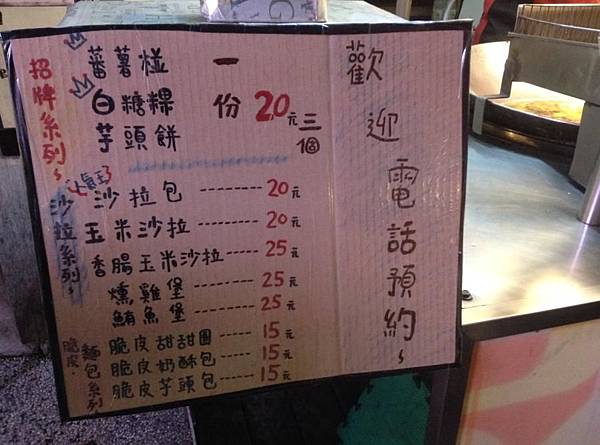 招牌系列~
蕃薯椪
白糖粿
芋頭餅
一份20元三個
沙拉系列~
沙拉包-------20元
玉米沙拉------20元
香腸玉米沙拉----25元
燻雞堡-----25元
鮪魚堡-----25元
脆皮.麵包系列
脆皮甜甜圈-----15元
脆皮奶酥包-----15元
脆皮芋頭包-----15元
歡迎電話預約~